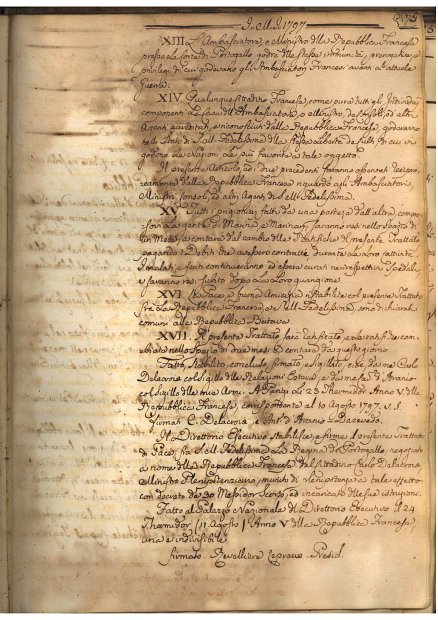 I. M. I. 1797
XIII. L'Ambasciatore, o Ministro della Repubblica Francese
presso la Corte di Portogallo godrà delle stesse immunità, prerogative, e
privilegi di cui godevano gli Ambasciatori Francesi avanti l'attuale
Guerra.
XIV. Qualunque Cittadino Francese, come pure tutti gli Individui
componenti la Casa dell'Ambasciatore, o Ministro, de' Consoli, ed altri
Agenti accreditati, e riconosciuti dalla Repubblica Francese, godranno
negli Stati di Sua Fedelissima della stessa libertà de' culti, di cui vi
godono le Nazioni le più favorite a tale oggetto.
Il presente Articolo, ed i due precedenti saranno osservati recipro-
camente dalla Repubblica Francese riguardo agli Ambasciatori,
Ministri, Consoli, ed altri Agenti di Sua Fedelissima.
XV. Tutti i prigionieri fatti da una parte, e dall'altra, compre-
si la gente di Marina, e Marinari, saranno resi nello spazio di
un Mese, a contare dal cambio delle Ratifiche del presente Trattato
pagando i Debiti che avesser contratti durante la loro cattività.
I malati, e feriti continueranno ad essere curati nei rispettivi Spedali,
e saranno resi subito dopo la loro guarigione.
XVI. La Pace, e buona Amicizia ristabilite col presente Trattato
fra la Repubblica Francese, e Sua Fedelissima, sono dichiarate
comuni alla Repubblica Batava.
XVII. Il presente Trattato sarà ratificato, e le ratifiche cam-
biate nello spazio di due mesi da contare da questo giorno.
Fatto, stabilito, concluso, firmato, e sigillato, cioè, da me Carlo
Delacroix col Sigillo delle Relazioni Estere, e da me d'Aranio
col sigillo delle mie Armi. A Parigi Le 23 Thermidor Anno V della
Repubblica Francese, corrispondente al 10 Agosto 1797. v. s.
firmati C. Delacroix, e Ant. di Aranio de Azevedo.
Il Direttorio Esecutivo stabilisce, e firma il presente Trattato
di Pace fra S.ª Fedelissima La Regina di Portogallo, negoziato
a nome della Repubblica Francese dal cittadino Carlo Delacroix,
Ministro Plenipotenziario, munito di plenipotenza a tale effetto
con decreto de' 30 Messidor scorso, ed incaricato delle sue istruzioni.
Fatto al Palazzo Nazionale del Direttorio Esecutivo il 24
Thermidor (11 Agosto) Anno V della Repubblica Francese,
una e indivisibile.
firmato. Revelliere Lepeaux. Presid.